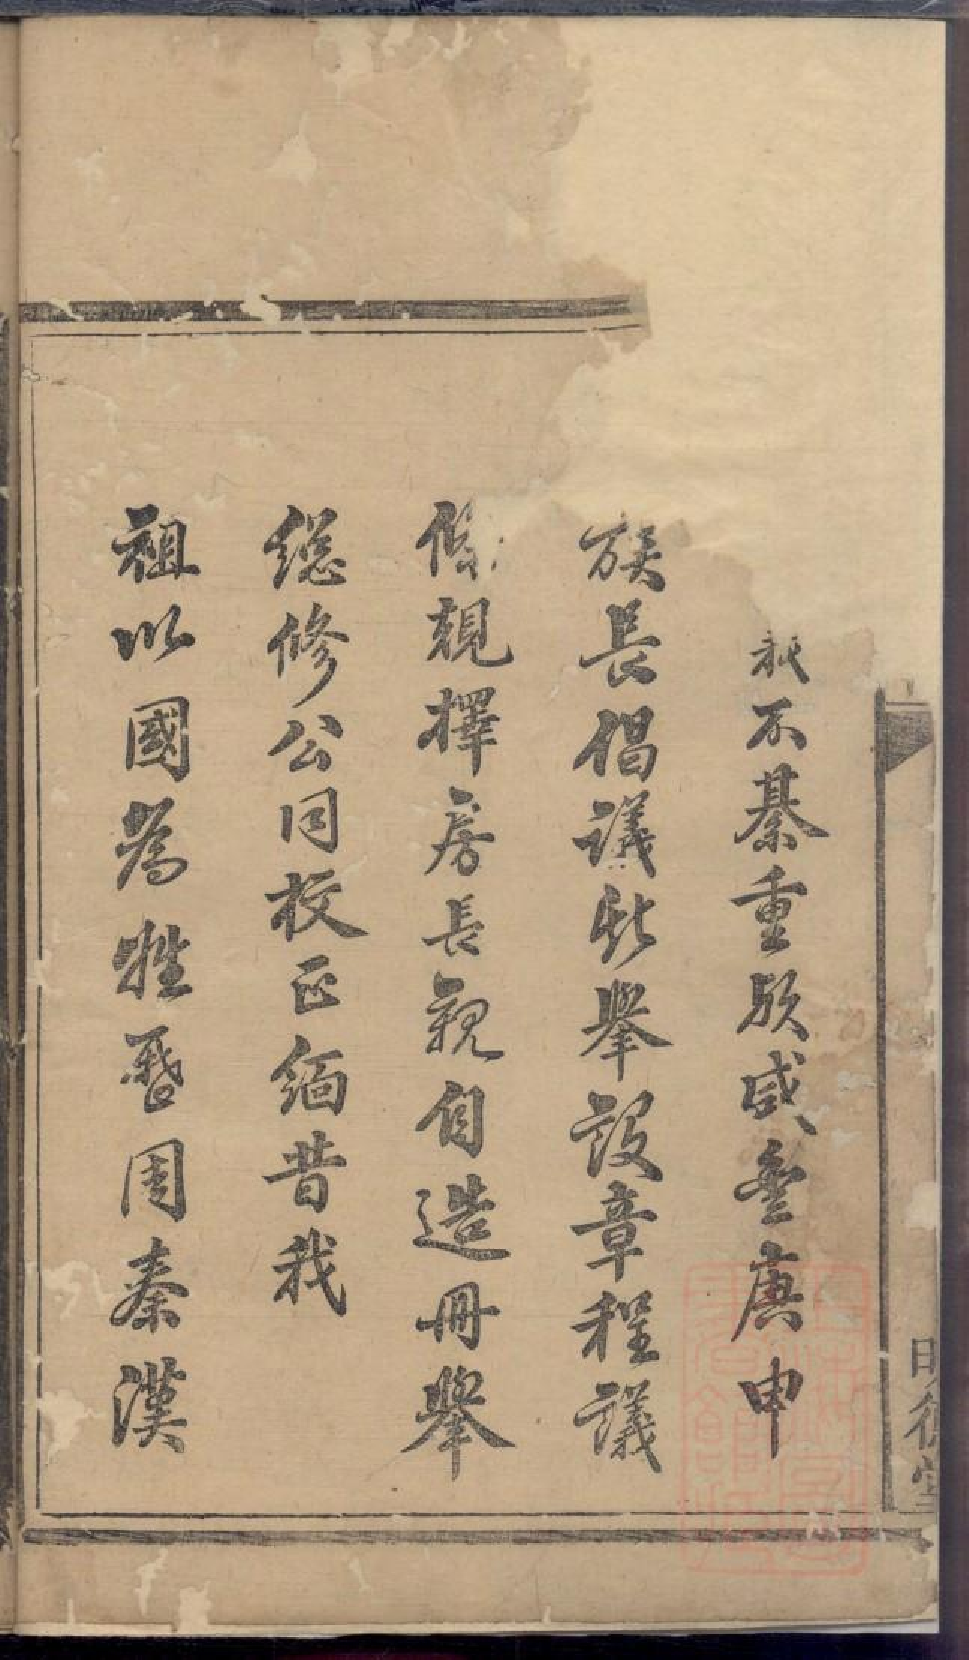 不綦重歟咸豐庚申
族長倡議此舉設章程議
條規擇房長親自造冊舉
總修公同校正緬昔我
祖以國為姓歷周秦漢
明德堂